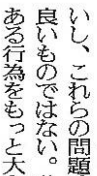 いし、これらの問題
良いものではない。
ある行為をもっと大